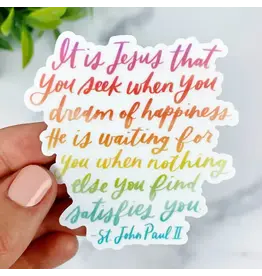 It is Jesus that
you seek when you
dream of happiness
He is waiting for
you when nothing
else you find
satisfies you
-St. John Paul II